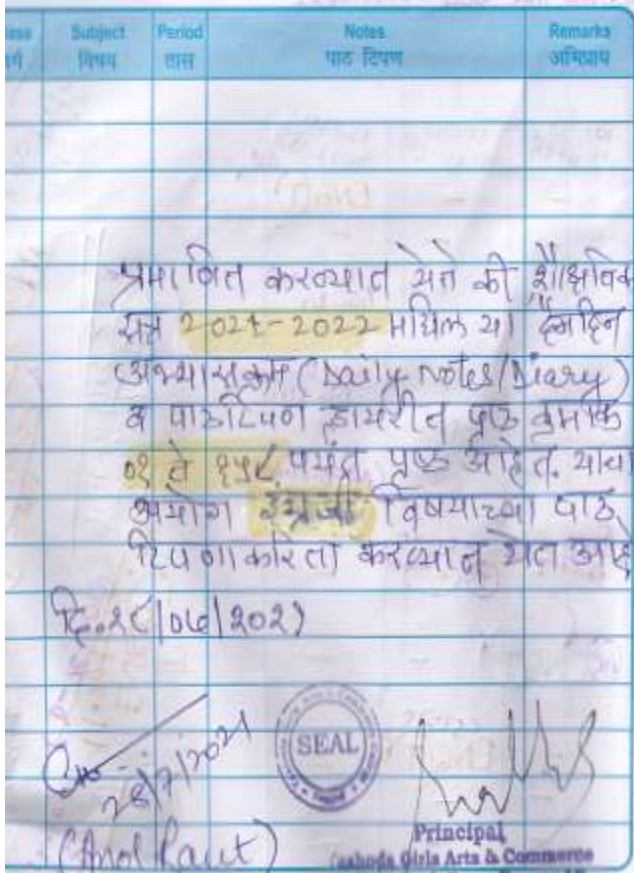 Subject Period Notes Remarks
विषय तास पाठ टिपण अभिप्राय
प्रमाणित करण्यात येते की शैक्षणिक
सत्र 2021-2022 मधिल या दैनंदिन
अभ्यासक्रम (Daily Notes/Diary)
व पाठटिपण डायरीत पृष्ठ क्रमांक
०१ ते १५८ पर्यंत पृष्ठ आहेत. याचा
इंग्रजी विषयाच्या पाठ
टिपणाकरिता करण्यात येत आहे
दि.२८/०७/२०२१
28/7/2021
SEAL
(Amol Raut)
Principal
Girls Arts & Commerce